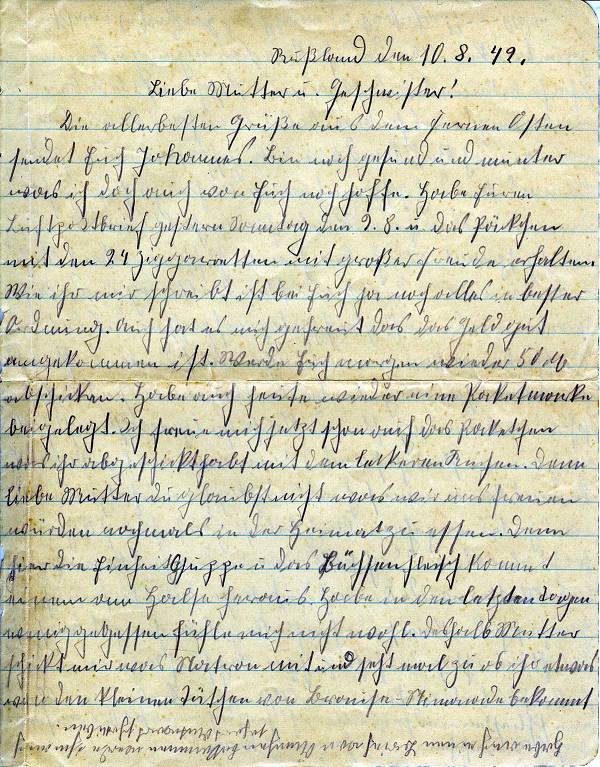 Rußland den 10.8.42.
Liebe Mutter u. Geschwister!
Die allerbesten Grüße aus dem fernen Osten
sendet Euch Johannes. Bin noch gesund und munter
was ich doch auch von Euch noch hoffe. Habe Euren
Luftpostbrief gestern Sonntag den 9.8. u das Päckchen
mit den 24 Ziggaretten mit großer Freude erhalten
Wie ihr mir schreibt ist bei Euch ja noch alles in bester
Ordnung. Auch hat es mich gefreut das das Geld gut
angekommen ist. Werde Euch morgen wieder 50
abschicken. Habe auch heute wieder eine Paketmarke
beigelegt. Ich freue mich jetzt schon auf das Paketchen
was ihr abgeschickt habt mit dem leckeren. Denn
liebe Mutter Du glaubst nicht was wir uns freuen
würden nochmals in der Heimat zu essen. Denn
hier die Einheitsuppe u das Büchsenfleisch kommt
einem am Halse heraus. Habe in den letzten Tagen
wenig gegessen fühle mich nicht wohl. Deshalb Mutter
schickt mir was Natron mit und seht mal zu ob ihr etwas
von den kleinen Tütchen von Brause-Limonade bekommt